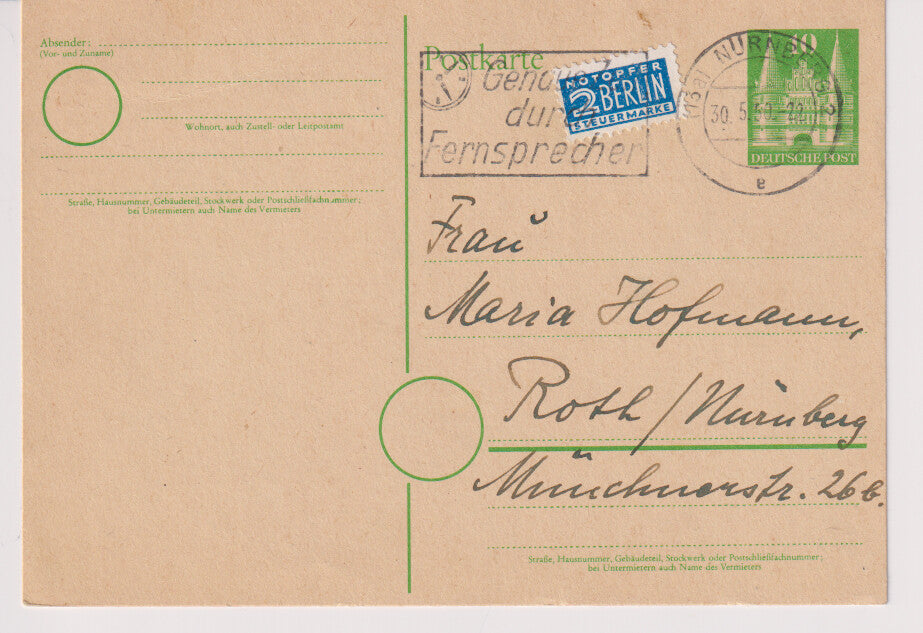 Absender:
(Vor- und Zuname)
Wohnort, auch Zustell- oder Leitpostamt
Straße, Hausnummer, Gebäudeteil, Stockwerk oder Postschließfachnummer;
bei Untermietern auch Name des Vermieters
Postkarte
durch
Fernsprecher
NOTOPFER
2 BERLIN
STEUERMARKE
NÜRNBERG
30.5.
e
DEUTSCHE POST
Frau
Maria Hofmann,
Roth/Nürnberg
Münchnerstr. 26 b.
Straße, Hausnummer, Gebäudeteil, Stockwerk oder Postschließfachnummer;
bei Untermietern auch Name des Vermieters